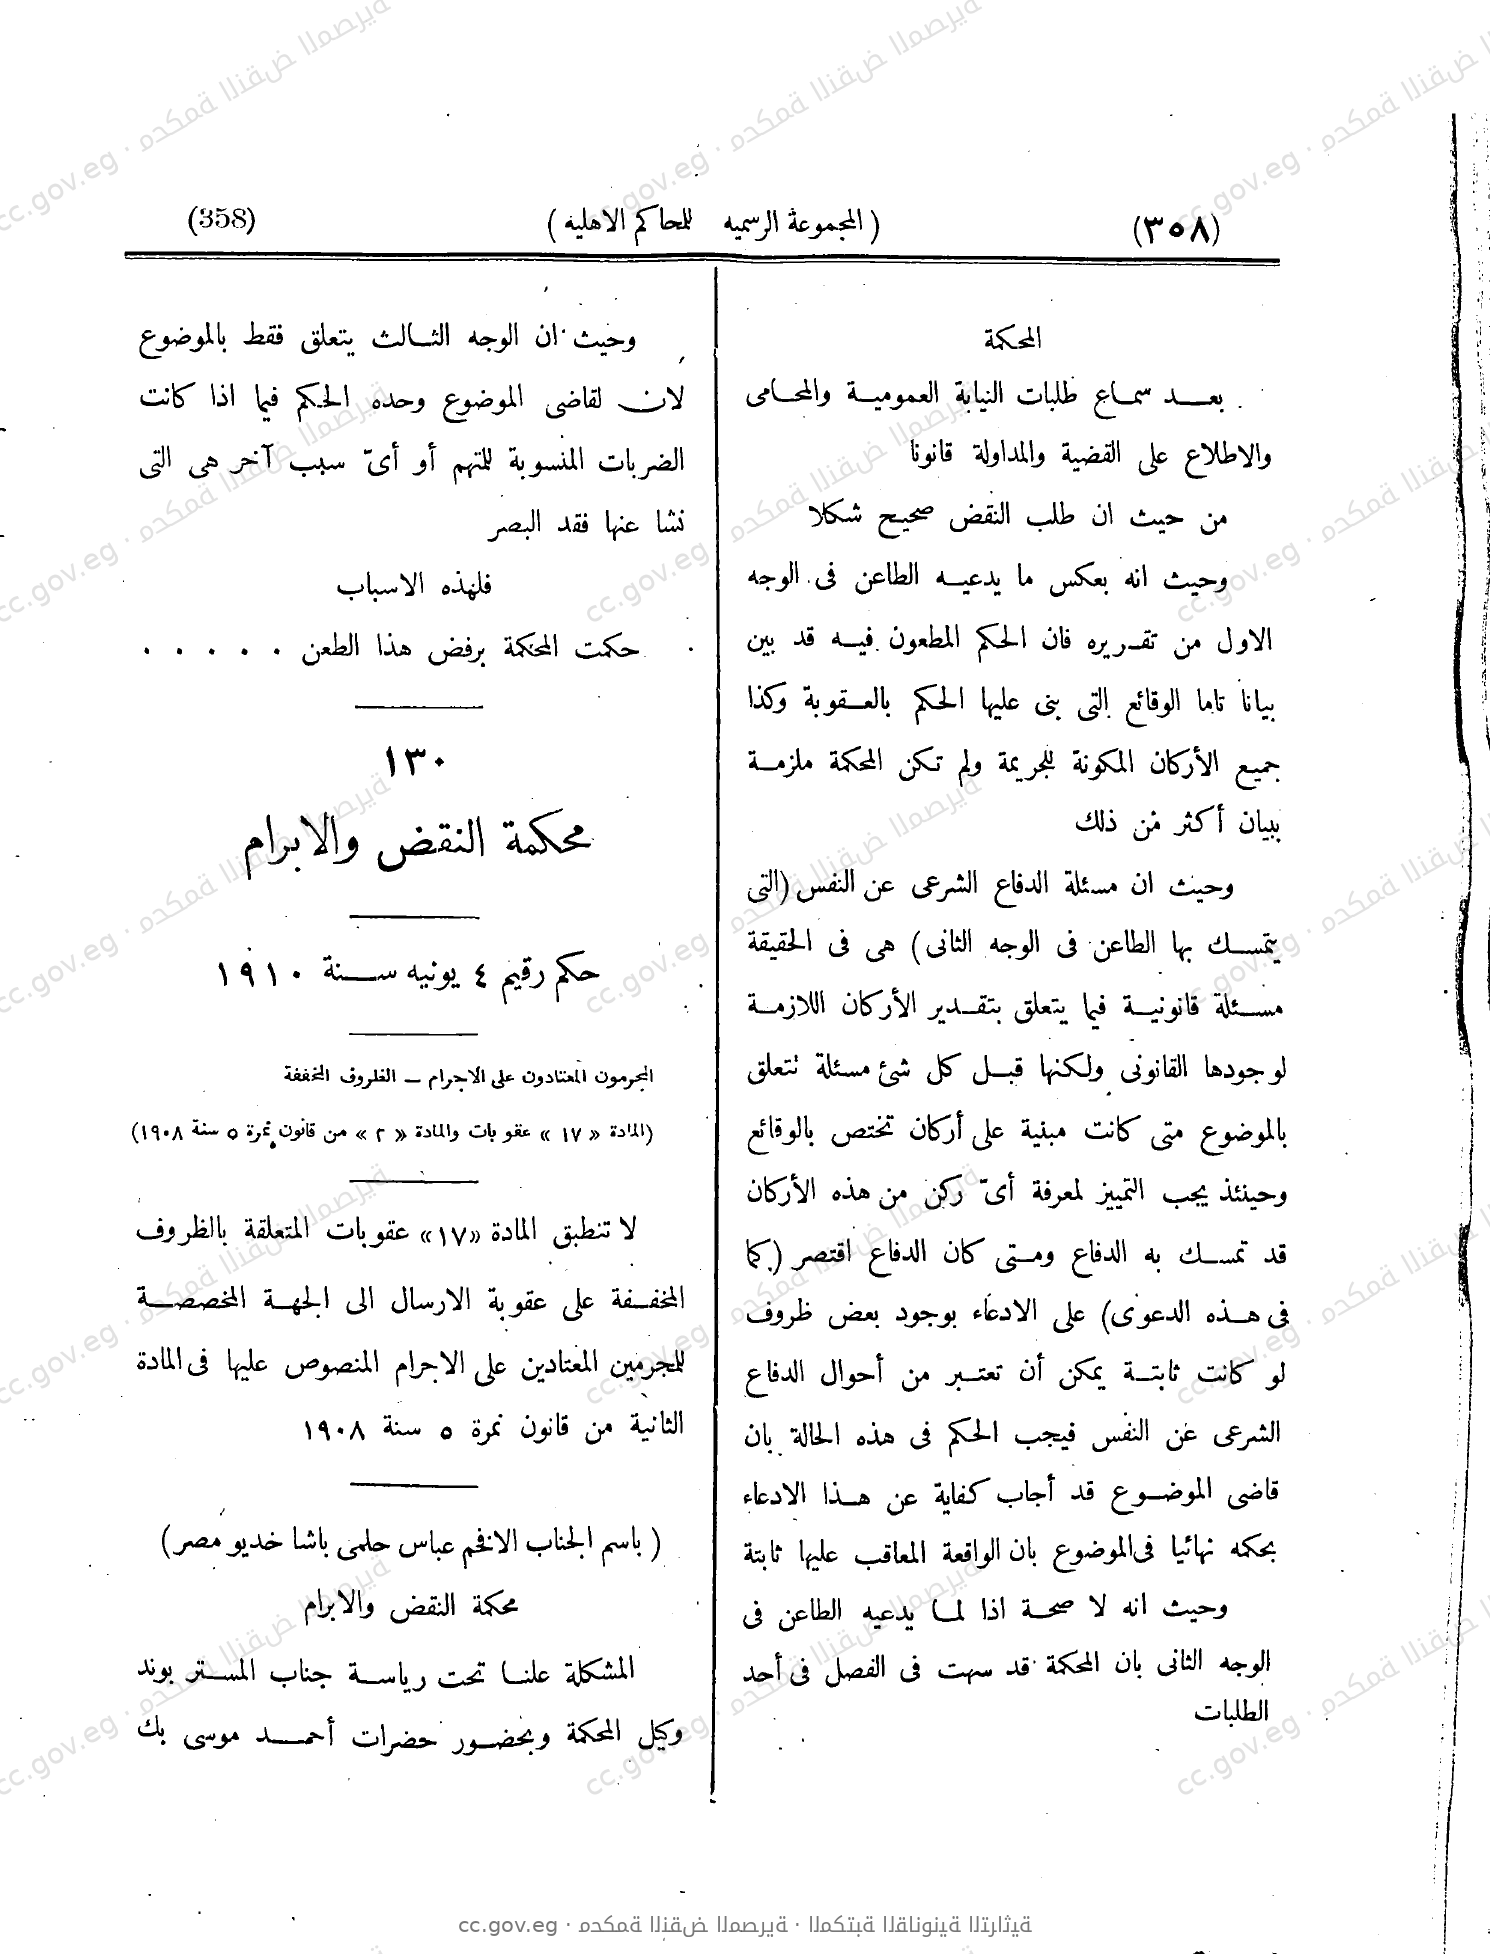 (٣٥٨) ( المجموعة الرسميه للمحاكم الاهليه ) (358)
المحكمة
بعــد سماع طلبات النيابة العمومية والمحامى
والاطلاع على القضية والمداولة قانونا
من حيث ان طلب النقض صحيح شكلا
وحيث انه بعكس ما يدعيه الطاعن فى الوجه
الاول من تقريره فان الحكم المطعون فيه قد بين
بيانا تاما الوقائع التى بنى عليها الحكم بالعقوبة وكذا
جميع الأركان المكونة للجريمة ولم تكن المحكمة ملزمة
ببيان أكثر من ذلك
وحيث ان مسئلة الدفاع الشرعى عن النفس (التى
يتمسك بها الطاعن فى الوجه الثانى) هى فى الحقيقة
مسئلة قانونية فيما يتعلق بتقدير الأركان اللازمة
لوجودها القانونى ولكنها قبل كل شئ مسئلة تتعلق
بالموضوع متى كانت مبنية على أركان تختص بالوقائع
وحينئذ يجب التمييز لمعرفة أىّ ركن من هذه الأركان
قد تمسك به الدفاع ومتى كان الدفاع اقتصر (كما
فى هذه الدعوى) على الادعاء بوجود بعض ظروف
لو كانت ثابتة يمكن أن تعتبر من أحوال الدفاع
الشرعى عن النفس فيجب الحكم فى هذه الحالة بان
قاضى الموضوع قد أجاب كفاية عن هذا الادعاء
بحكمه نهائيا فى الموضوع بان الواقعة المعاقب عليها ثابتة
وحيث انه لا صحة اذا لما يدعيه الطاعن فى
الوجه الثانى بان المحكمة قد سهت فى الفصل فى أحد
الطلبات
وحيث ان الوجه الثالث يتعلق فقط بالموضوع
لان لقاضى الموضوع وحده الحكم فيما اذا كانت
الضربات المنسوبة للمتهم أو أىّ سبب آخر هى التى
نشا عنها فقد البصر
فلهذه الاسباب
حكمت المحكمة برفض هذا الطعن . . . . .
١٣٠
محكمة النقض والابرام
حكم رقيم ٤ يونيه سنة ١٩١٠
المجرمون المعتادون على الاجرام – الظروف المخففة
(المادة «١٧» عقوبات والمادة «٢» من قانون نمرة ٥ سنة ١٩٠٨)
لا تنطبق المادة «١٧» عقوبات المتعلقة بالظروف
المخففة على عقوبة الارسال الى الجهة المخصصة
للمجرمين المعتادين على الاجرام المنصوص عليها فى المادة
الثانية من قانون نمرة ٥ سنة ١٩٠٨
( باسم الجناب الافخم عباس حلمى باشا خديو مصر)
محكمة النقض والابرام
المشكلة علنا تحت رياسة جناب المستر بوند
وكيل المحكمة وبحضور حضرات أحمد موسى بك
cc.gov.eg · محكمة النقض المصرية · المكتبة القانونية التراثية